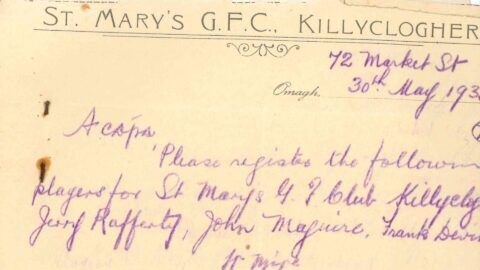 ST. MARY'S G.F.C., KILLYCLOGHER
72 Market St
Omagh, 30th May 193
A cara,
Please register the followin
players for St Marys G. F Club Killyclo
Jerry Rafferty, John Maguire, Frank Devi